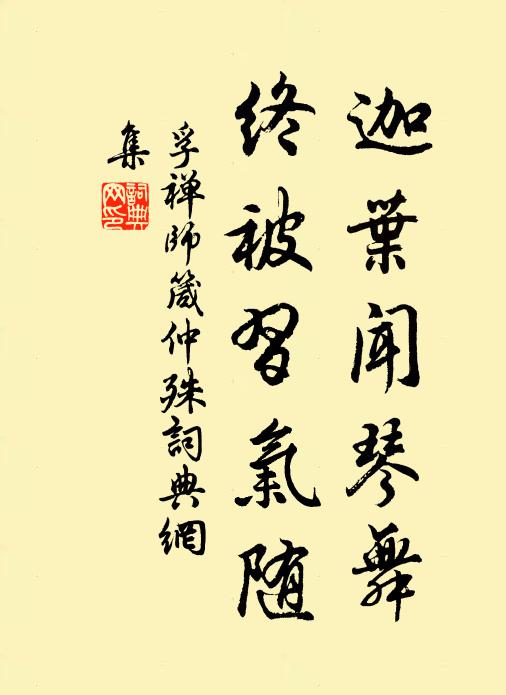 迦葉聞琴舞
終被習氣随
孚禅師箴仲殊詞典網
集
詞典
网印